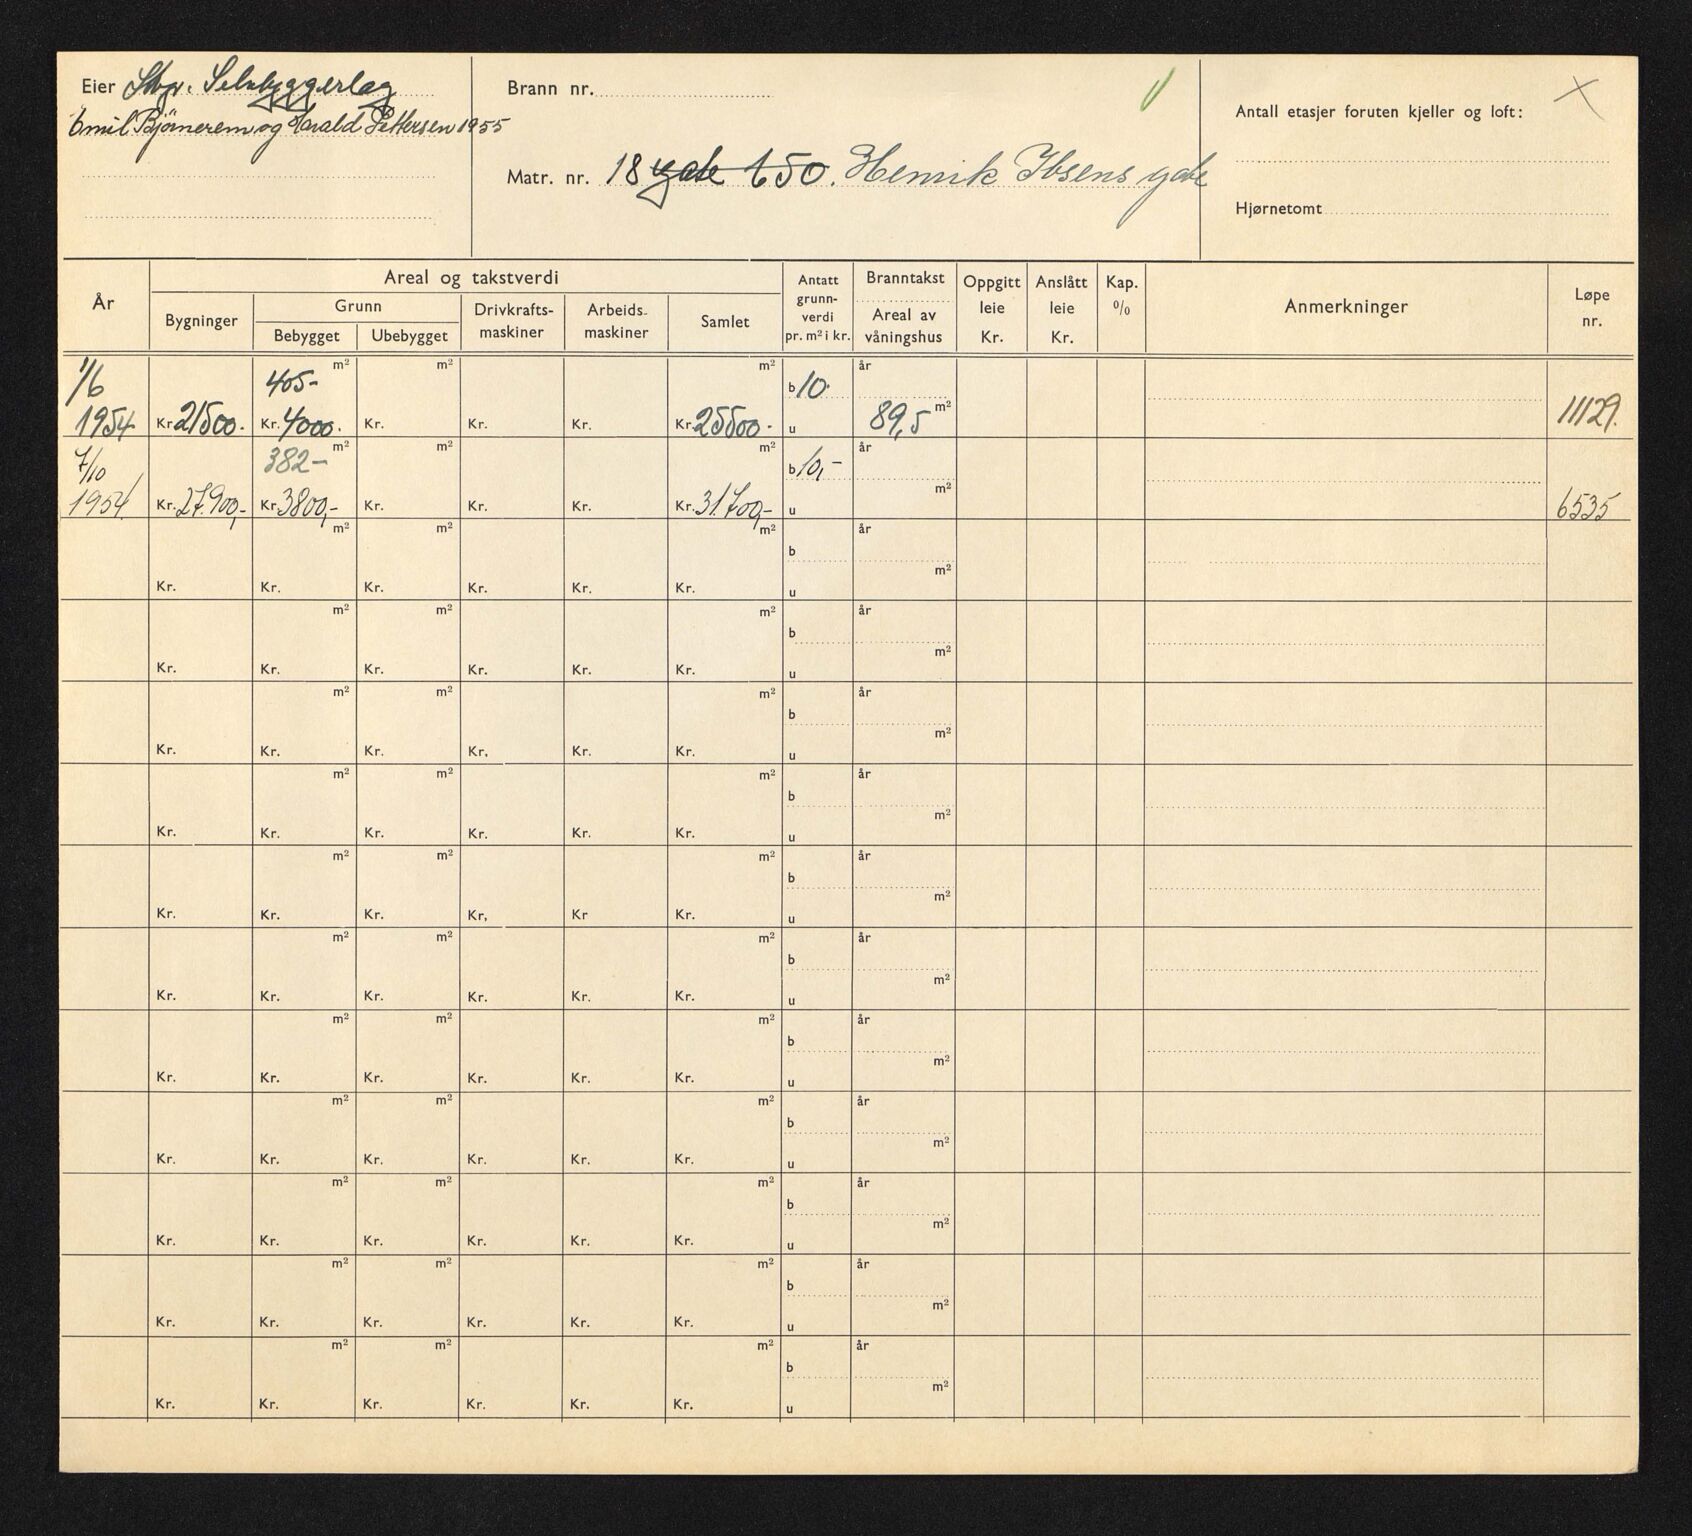 Eier Stvgr. Selvbyggerlag
Emil Bjørnerem og Harald Pettersen 1955
Brann nr.
Matr. nr. 18 gate 650. Henrik Ibsens gate
Antall etasjer foruten kjeller og loft:
Hjørnetomt
År
Areal og takstverdi
Bygninger
Grunn
Bebygget
Ubebygget
Drivkrafts-
maskiner
Arbeids-
maskiner
Samlet
Antatt
grunn-
verdi
pr. m² i kr.
Branntakst
Areal av
våningshus
Oppgitt
leie
Kr.
Anslått
leie
Kr.
Kap.
%
Anmerkninger
Løpe
nr.
1/6 405- m² m² m² b 10. år
1954 Kr. 21500. Kr. 4000. Kr. Kr. Kr. Kr. 25500.- u 89,5 m² 11129.
7/10 382- m² m² m² b 10,- år
1954 Kr. 27.900,- Kr. 3800,- Kr. Kr. Kr. Kr. 31.700,- u m² 6535
m² m² m² b år
Kr. Kr. Kr. Kr. Kr. Kr. u m²
m² m² m² b år
Kr. Kr. Kr. Kr. Kr. Kr. u m²
m² m² m² b år
Kr. Kr. Kr. Kr. Kr. Kr. u m²
m² m² m² b år
Kr. Kr. Kr. Kr. Kr. Kr. u m²
m² m² m² b år
Kr. Kr. Kr. Kr, Kr Kr. u m²
m² m² m² b år
Kr. Kr. Kr. Kr. Kr. Kr. u m²
m² m² m² b år
Kr. Kr. Kr. Kr. Kr. Kr. u m²
m² m² m² b år
Kr. Kr. Kr. Kr. Kr. Kr. u m²
m² m² m² b år
Kr. Kr. Kr. Kr. Kr. Kr. u m²
m² m² m² b år
Kr. Kr. Kr. Kr. Kr. Kr. u m²
m² m² m² b år
Kr. Kr. Kr. Kr. Kr. Kr. u m²